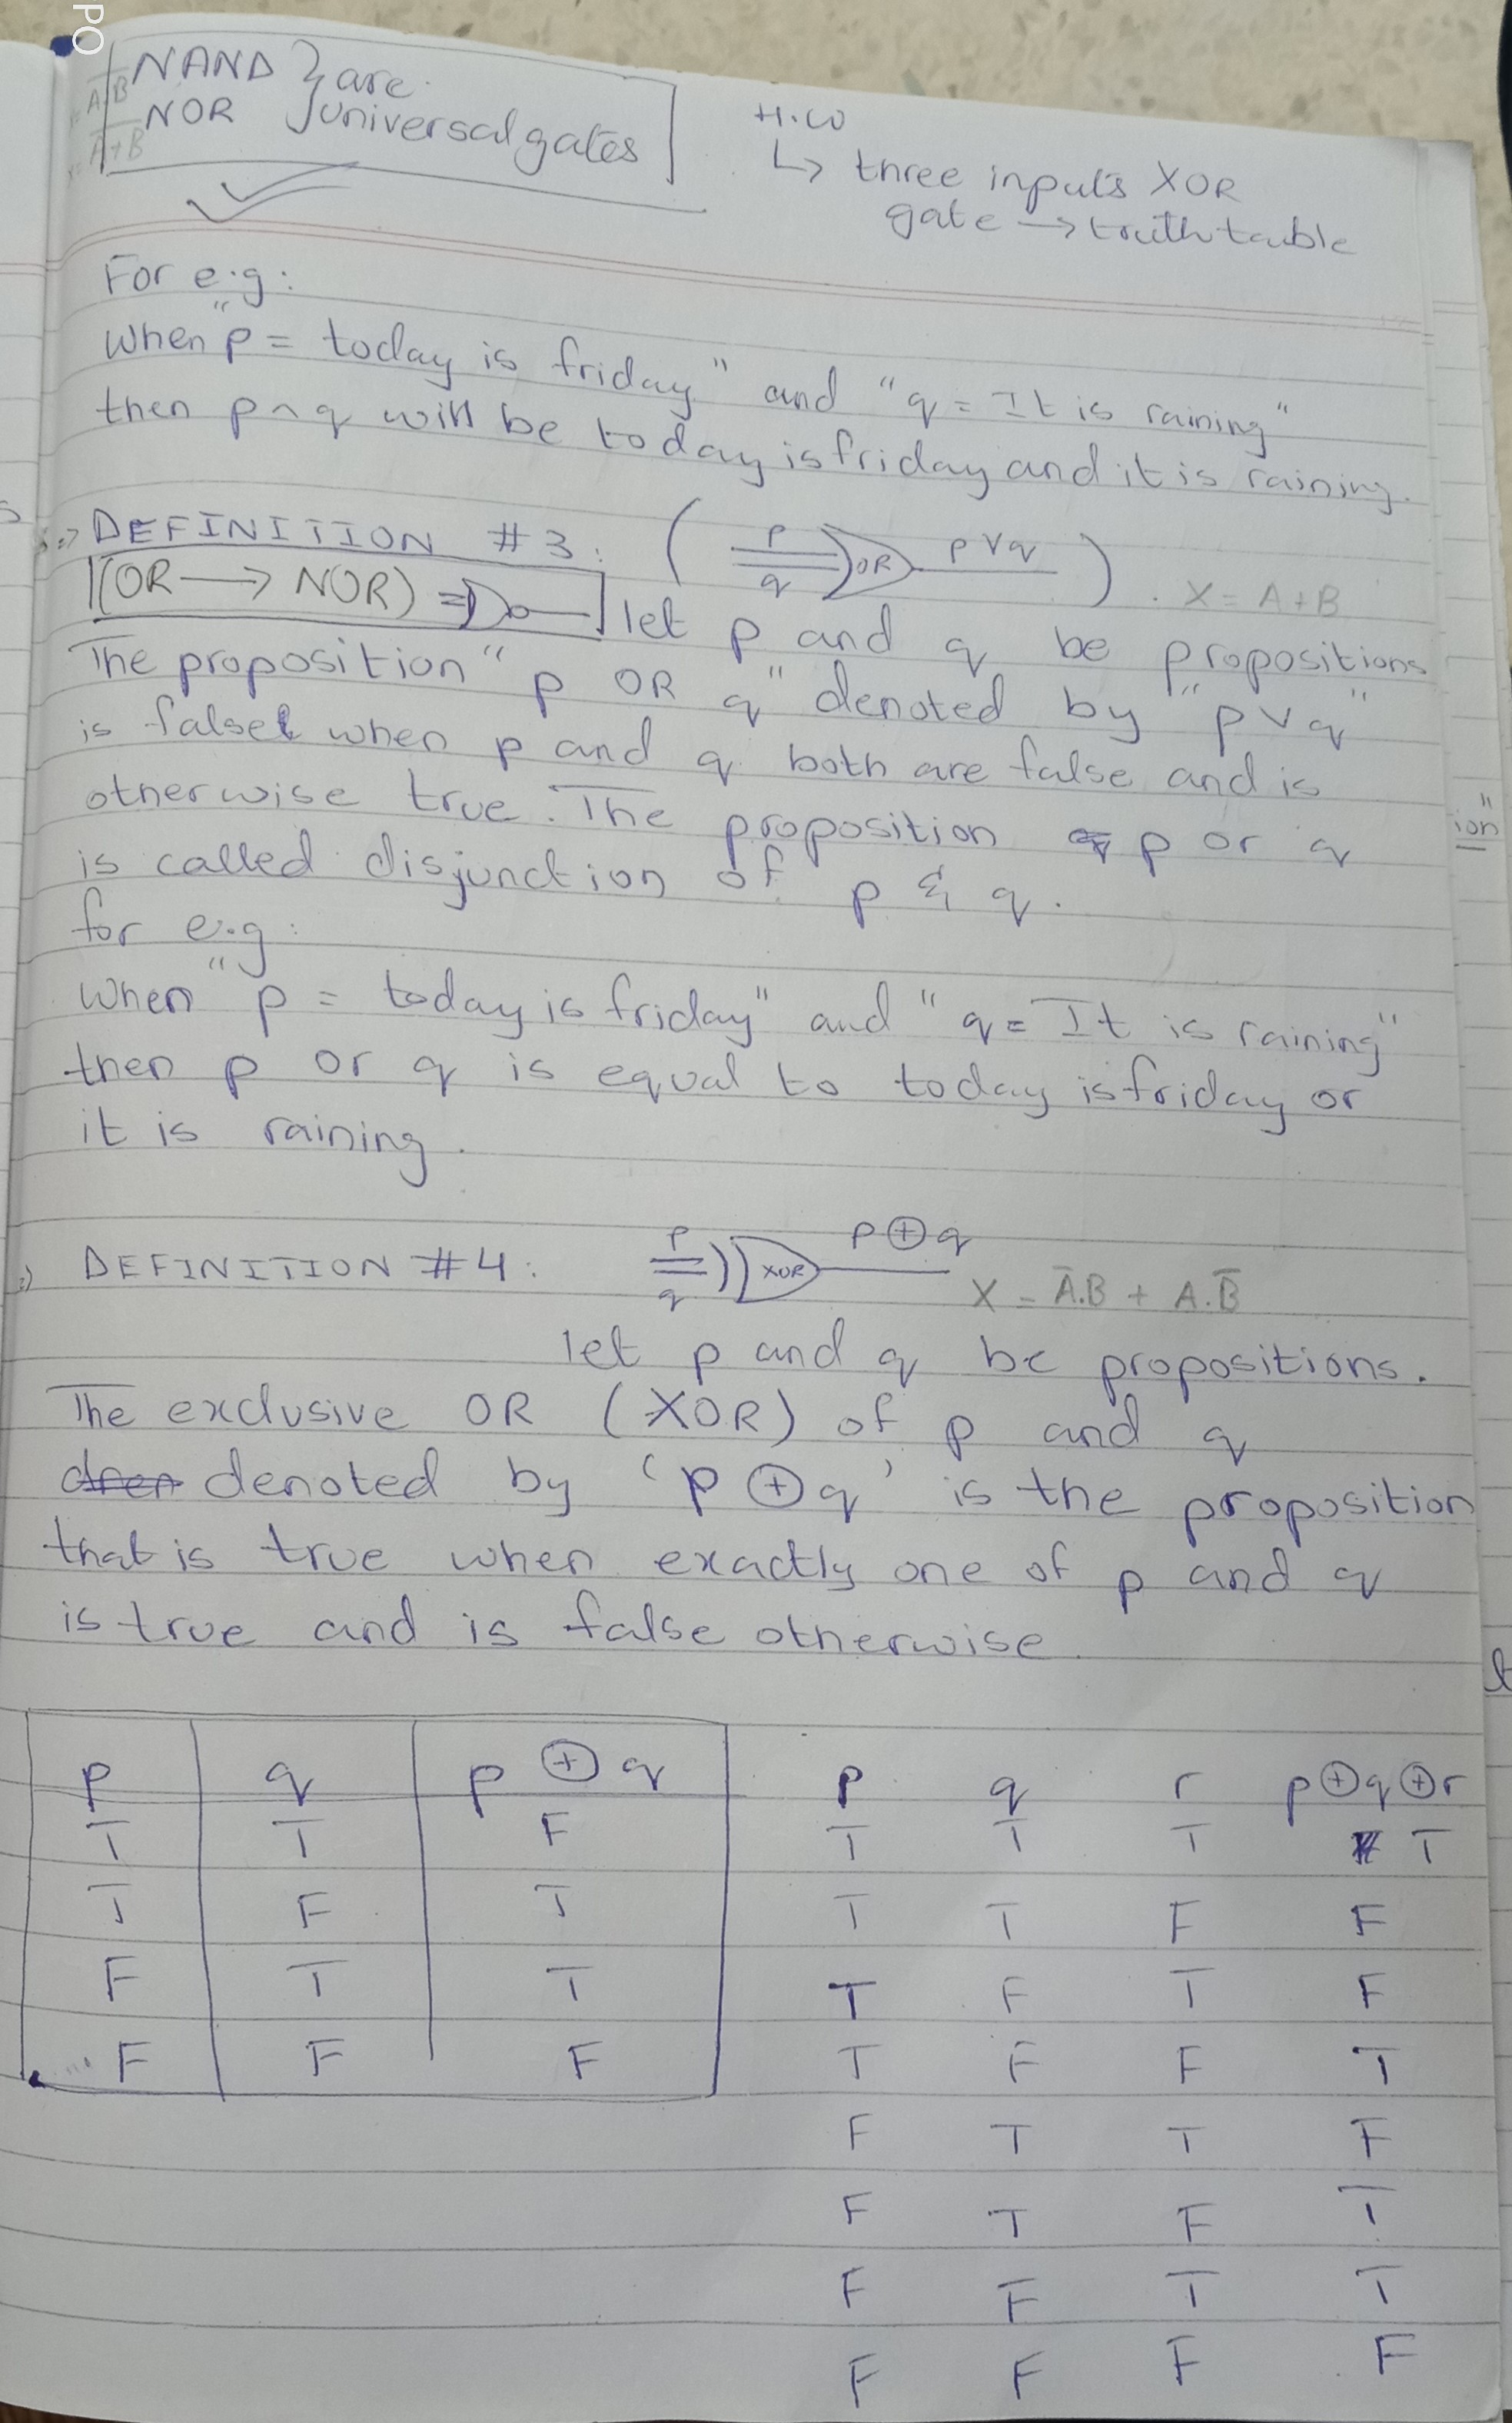 PO
NAND } are
NOR } universal gates
A.B
A+B
H.W
↳ three inputs XOR
gate → truth table
For e.g:
When "p = today is friday" and "q = It is raining"
then p ∧ q will be today is friday and it is raining.
DEFINITION #3: ( p q OR p ∨ q ) . X = A+B
(OR → NOR) = let p and q be propositions
The proposition "p OR q" denoted by "p ∨ q"
is false when p and q both are false and is
otherwise true. The proposition p or q
is called disjunction of p & q.
for e.g:
When "p = today is friday" and "q = It is raining"
then p or q is equal to today is friday or
it is raining.
DEFINITION #4: p q XOR p ⊕ q
X = A̅.B + A.B̅
let p and q be propositions.
The exclusive OR (XOR) of p and q
denoted by 'p ⊕ q' is the proposition
that is true when exactly one of p and q
is true and is false otherwise.
p q p ⊕ q
T T F
T F T
F T T
F F F
p q r p⊕q⊕r
T T T T
T T F F
T F T F
T F F T
F T T F
F T F T
F F T T
F F F F
ion"